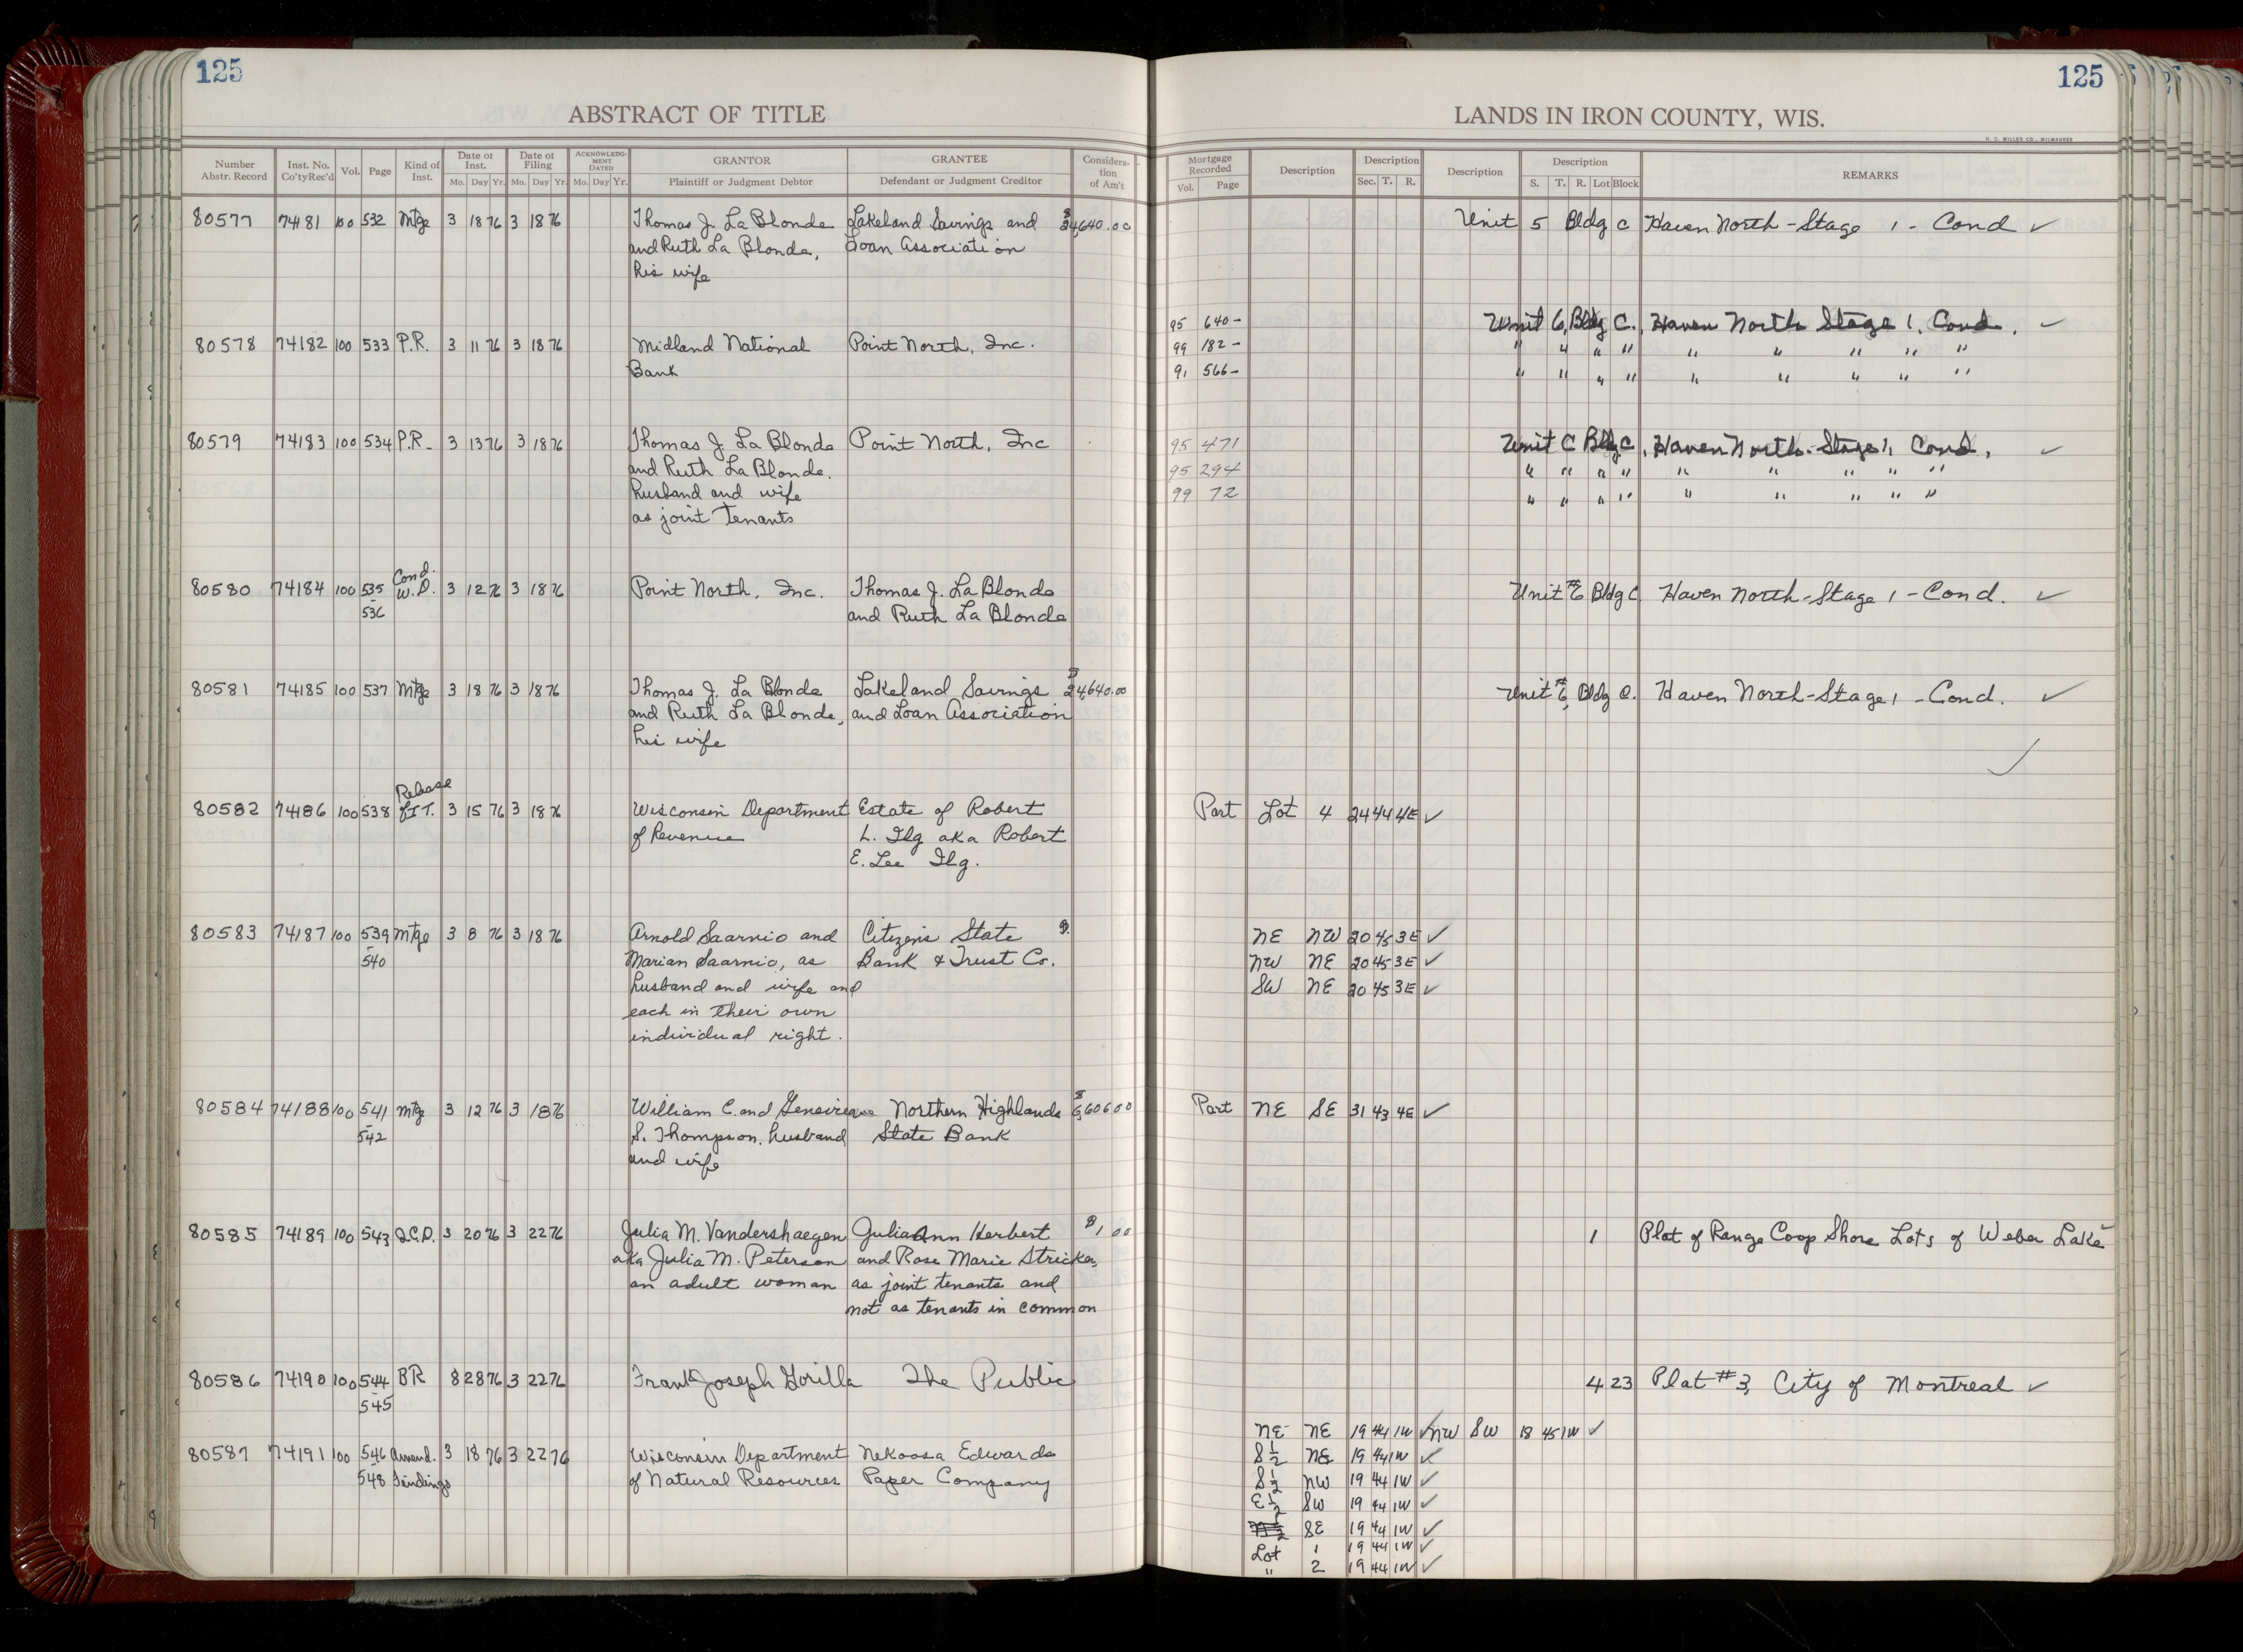 125
125
ABSTRACT OF TITLE
LANDS IN IRON COUNTY, WIS.
H. C. MILLER CO., MILWAUKEE
Number Abstr. Record Inst. No. Co'ty Rec'd Vol. Page Kind of Inst. Date of Inst. Mo. Day Yr. Date of Filing Mo. Day Yr. ACKNOWLEDGMENT DATED Mo. Day Yr. GRANTOR Plaintiff or Judgment Debtor GRANTEE Defendant or Judgment Creditor Consideration of Am't
Mortgage Recorded Vol. Page Description Description Sec. T. R. Description Description S. T. R. Lot Block REMARKS
80577 74181 100 532 Mtge 3 18 76 3 18 76 Thomas J. La Blonde Lakeland Savings and $24,640.00 Unit 5 Bldg C Haven North-Stage 1 - Cond ✓
and Ruth La Blonde, Loan Association
his wife
95 640- Unit 6, Bldg C. Haven North Stage 1, Cond. ✓
80578 74182 100 533 P.R. 3 11 76 3 18 76 Midland National Point North, Inc. 99 182- " " " " " " " " "
Bank 91 566- " " " " " " " " "
80579 74183 100 534 P.R. 3 13 76 3 18 76 Thomas J. La Blonde Point North, Inc 95 471 Unit C Bldg C, Haven North-Stage 1, Cond. ✓
and Ruth La Blonde, 95 294 " " " " " " " " "
husband and wife 99 72 " " " " " " " " "
as joint tenants
80580 74184 100 535-536 Cond. W.D. 3 12 76 3 18 76 Point North, Inc. Thomas J. La Blonde Unit #6 Bldg C. Haven North-Stage 1-Cond. ✓
and Ruth La Blonde
80581 74185 100 537 Mtge 3 18 76 3 18 76 Thomas J. La Blonde Lakeland Savings $24,640.00 Unit #6, Bldg C. Haven North-Stage 1 -Cond. ✓
and Ruth La Blonde, and Loan Association
his wife ✓
80582 74186 100 538 Release I.T. 3 15 76 3 18 76 Wisconsin Department Estate of Robert Part Lot 4 24 44 4E ✓
of Revenue L. Ilg aka Robert
E. Lee Ilg.
80583 74187 100 539-540 Mtge 3 8 76 3 18 76 Arnold Saarnio and Citizens State $ NE NW 20 45 3E ✓
Marian Saarnio, as Bank & Trust Co. NW NE 20 45 3E ✓
husband and wife and SW NE 20 45 3E ✓
each in their own
individual right.
80584 74188 100 541-542 Mtge 3 12 76 3 18 76 William C. and Genevieve Northern Highlands $6,606.00 Part NE SE 31 43 4E ✓
S. Thompson, husband State Bank
and wife
80585 74189 100 543 Q.C.D. 3 20 76 3 22 76 Julia M. Vandershaegen Julia Ann Herbert $1.00 1 Plat of Range Coop Shore Lots of Weber Lake ✓
aka Julia M. Peterson and Rose Marie Stricker,
an adult woman as joint tenants and
not as tenants in common
80586 74190 100 544-545 BR 8 28 76 3 22 76 Frank Joseph Gorilla The Public 4 23 Plat #3, City of Montreal ✓
NE NE 19 44 1W ✓ NW SW 18 45 1W ✓
80587 74191 100 546-548 Amend. Findings 3 18 76 3 22 76 Wisconsin Department Nekoosa Edwards S½ NE 19 44 1W ✓
of Natural Resources Paper Company S½ NW 19 44 1W ✓
E½ SW 19 44 1W ✓
SE 19 44 1W ✓
Lot 1 19 44 1W ✓
" 2 19 44 1W ✓